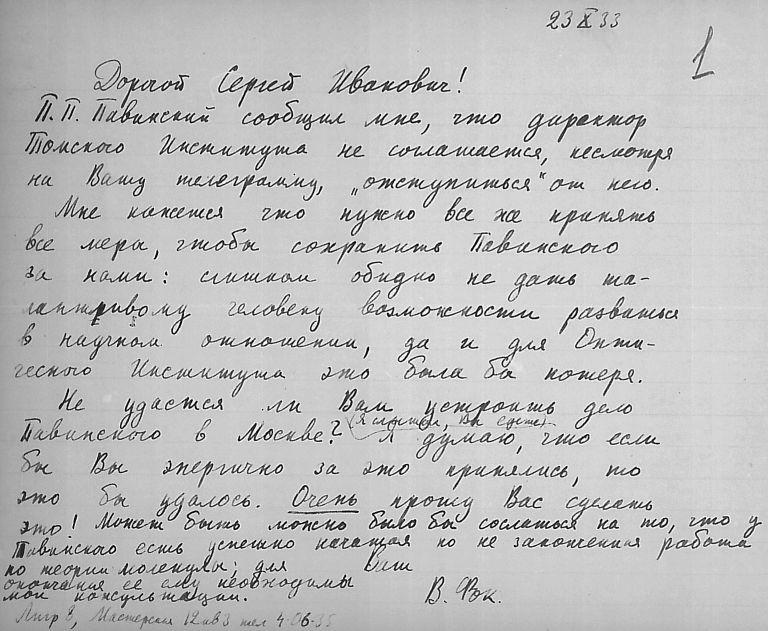 23 X 33
1
Дорогой Сергей Иванович!
П. П. Павинский сообщил мне, что директор
Томского Института не соглашается, несмотря
на Вашу телеграмму, „отступиться“ от него.
Мне кажется что нужно все же принять
все меры, чтобы сохранить Павинского
за нами: слишком обидно не дать та-
лантливому человеку возможности развиться
в научном отношении, да и для Опти-
ческого Института это была бы потеря.
Не удастся ли Вам устроить дело
(Я слышал, Вы едете).
Павинского в Москве? Я думаю, что если
бы Вы энергично за это принялись, то
это бы удалось. Очень прошу Вас сделать
это! Может быть можно было бы сослаться на то, что у
Павинского есть успешно начатая но не законченная работа
по теории молекулы; для
окончания ее ему необходимы
мои консультации.
Ваш
В. Фок.
8, Мастерская 12 кв 3 тел 4-06-35